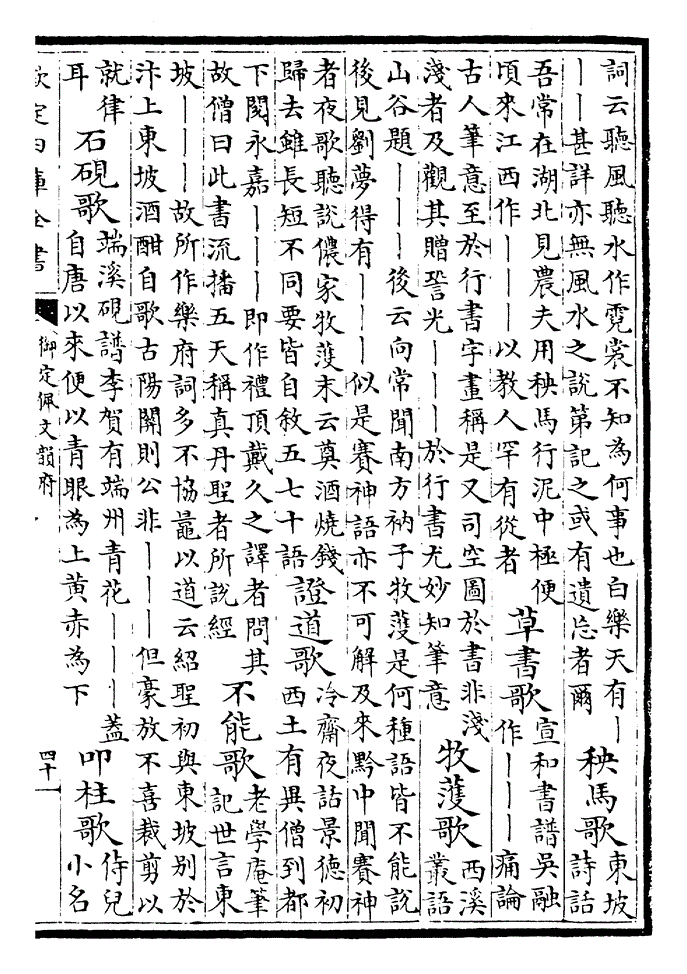 詞云聽風聽水作霓裳不知為何事也白樂天有｜
｜｜甚詳亦無風水之説第記之或有遺忘者爾
秧馬歌
東坡
詩話
吾常在湖北見農夫用秧馬行泥中極便
頃來江西作｜｜｜以教人罕有從者
草書歌
宣和書譜吳融
作｜｜｜痛論
古人筆意至於行書字畫稱是又司空圖於書非淺
淺者及觀其贈䛒光｜｜｜於行書尤妙知筆意
牧䕶歌
西溪
叢語
山谷題｜｜｜後云向常聞南方衲子牧䕶是何種語皆不能説
後見劉夢得有｜｜｜似是賽神語亦不可解及來黔中聞賽神
者夜歌聽説儂家牧䕶末云奠酒燒錢
歸去雖長短不同要皆自敘五七十語
證道歌
冷齋夜話景德初
西土有異僧到都
下閲永嘉｜｜｜即作禮頂戴久之譯者問其
故僧曰此書流播五天稱真丹聖者所説經
不能歌
老學庵筆
記世言東
坡｜｜｜故所作樂府詞多不協鼂以道云紹聖初與東坡别於
汴上東坡酒酣自歌古陽關則公非｜｜｜但豪放不喜裁剪以
就律
耳
石硯歌
端溪硯譜李賀有端州青花｜｜｜葢
自唐以來便以青眼為上黄赤為下
叩柱歌
侍兒
小名
欽定四庫全書
御定佩文韻府
四十一